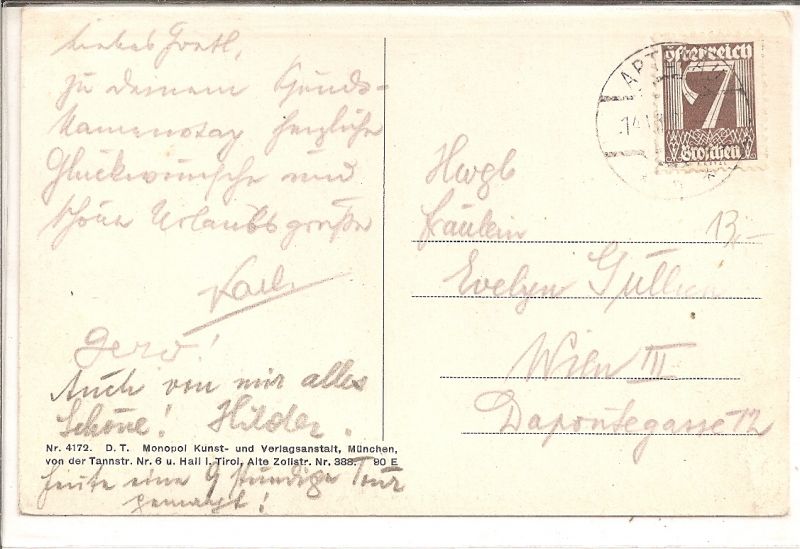 zu deinem
Namenstag herzliche
Glückwünsche und
schöne Urlaubsgrüße
Karl
Auch von mir alles
Schöne! Hilder.
Nr. 4172. D. T. Monopol Kunst- und Verlagsanstalt, München,
von der Tannstr. Nr. 6 u. Hall i. Tirol, Alte Zollstr. Nr. 388. 90 E
heute eine 9 stündige Tour
gemacht!
Österreich
7
Groschen
Hwgb
Fräulein
13.-
Evelyn
Wien III
Dapontegasse 12